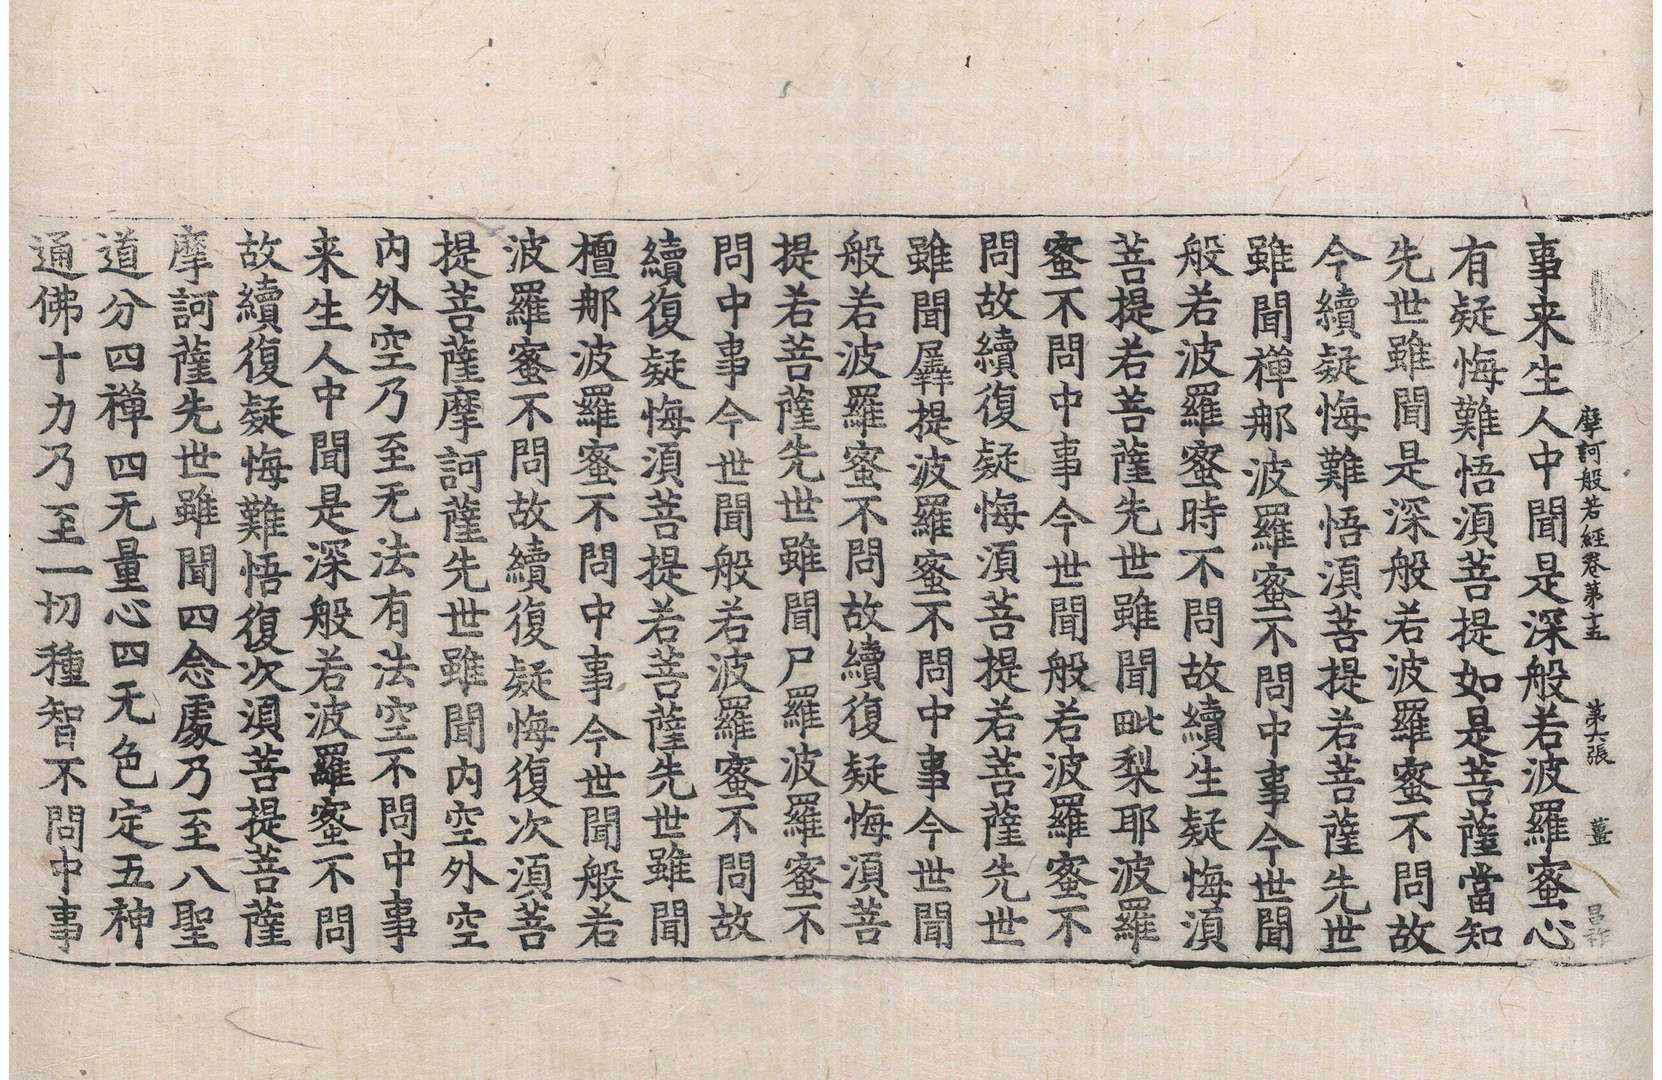 摩訶般若經卷第十五 第六張 薑 昌祚
事来生人中聞是深般若波羅蜜心
有疑悔難悟湏菩提如是菩薩當知
先世雖聞是深般若波羅蜜不問故
今續疑悔難悟湏菩提若菩薩先世
雖聞禪那波羅蜜不問中事今世聞
般若波羅蜜時不問故續生疑悔湏
菩提若菩薩先世雖聞毗梨耶波羅
蜜不問中事今世聞般若波羅蜜不
問故續復疑悔湏菩提若菩薩先世
雖聞羼提波羅蜜不問中事今世聞
般若波羅蜜不問故續復疑悔湏菩
提若菩薩先世雖聞尸羅波羅蜜不
問中事今世聞般若波羅蜜不問故
續復疑悔湏菩提若菩薩先世雖聞
檀那波羅蜜不問中事今世聞般若
波羅蜜不問故續復疑悔復次湏菩
提菩薩摩訶薩先世雖聞内空外空
内外空乃至无法有法空不問中事
来生人中聞是深般若波羅蜜不問
故續復疑悔難悟復次湏菩提菩薩
摩訶薩先世雖聞四念處乃至八聖
道分四禪四无量心四无色定五神
通佛十力乃至一切種智不問中事